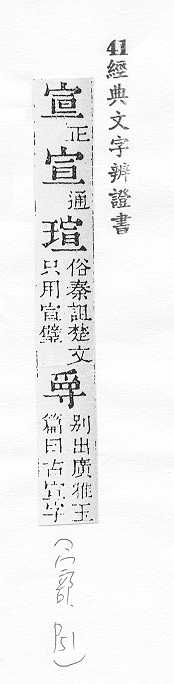 41經典文字辨證書
宣正宣通瑄俗秦詛楚文
只用宣璧
別出廣雅玉
篇曰古宣字
(宀部 P51)